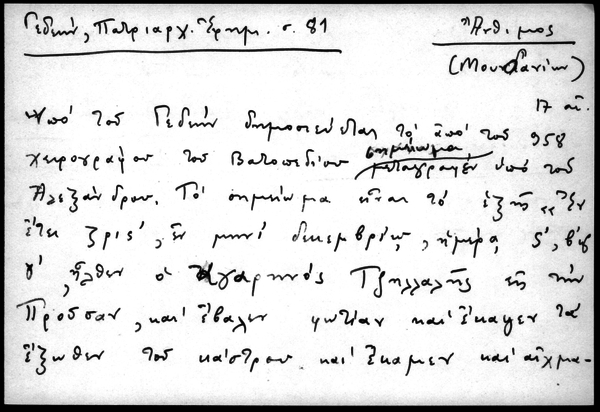 Γεδεών, Πατριαρχ. Ἐφημ. σ. 81
Ἄνθιμος
(Μουδανίων)
17 αἰ.
Ὑπό τοῦ Γεδεών δημοσιεύεται τό ἀπό τοῦ 958
χειρογράφου τοῦ Βατοπεδίου σημείωμα μεταγραφέν ὑπό τοῦ
Ἀλεξάνδρου. Τό σημείωμα εἶναι τό ἑξῆς „Ἐν
ἔτει ζριϛ', ἐν μηνί δεκεμβρίῳ, ἡμέρᾳ
γ', ἦλθεν ὁ Ἀγαρηνός Τζηλλαλῆς εἰς τήν
Προῦσαν, καί ἔβαλεν φωτίαν καί ἔκαψεν τά
ἔξωθεν τοῦ κάστρου καί ἔκαμεν καί αἰχμα-